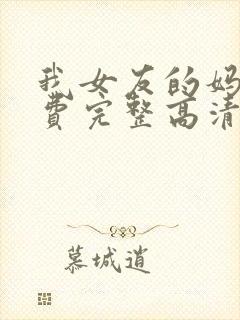 我女友的妈
费完整高清
慕城逍